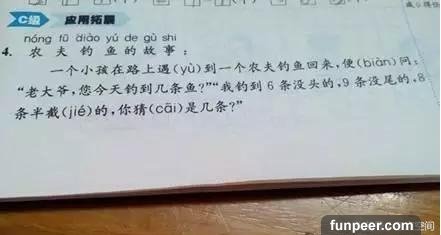 C级 应用拓展
nóng fū diào yú de gù shi
4. 农 夫 钓 鱼 的 故 事：
一个小孩在路上遇(yù)到一个农夫钓鱼回来，便(biàn)问：
“老大爷，您今天钓到几条鱼？”“我钓到 6 条没头的，9 条没尾的，8
条半截(jié)的，你猜(cāi)是几条？”
funpeer.com